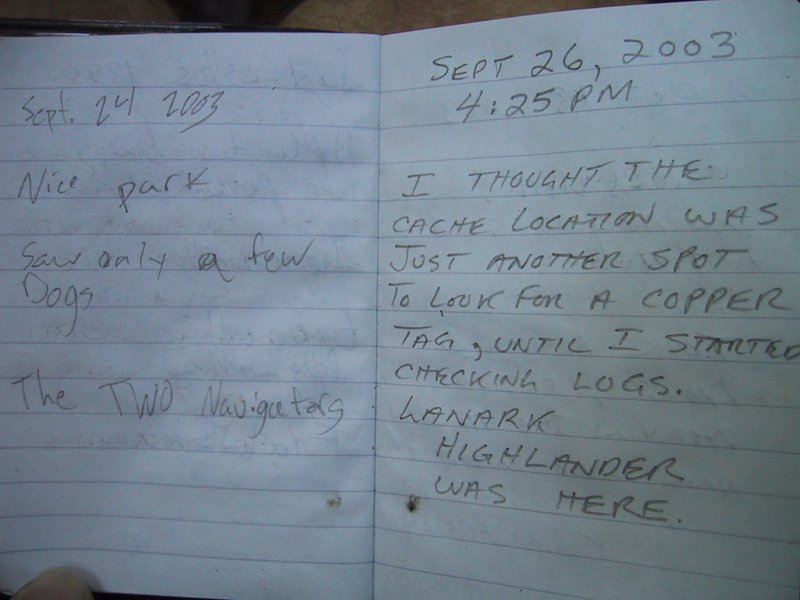 Sept. 24 2003
Nice park
Saw only a few
Dogs
The TWO Navigators
SEPT 26, 2003
4:25 PM
I THOUGHT THE
CACHE LOCATION WAS
JUST ANOTHER SPOT
TO LOOK FOR A COPPER
TAG, UNTIL I STARTED
CHECKING LOGS.
LANARK
HIGHLANDER
WAS HERE.